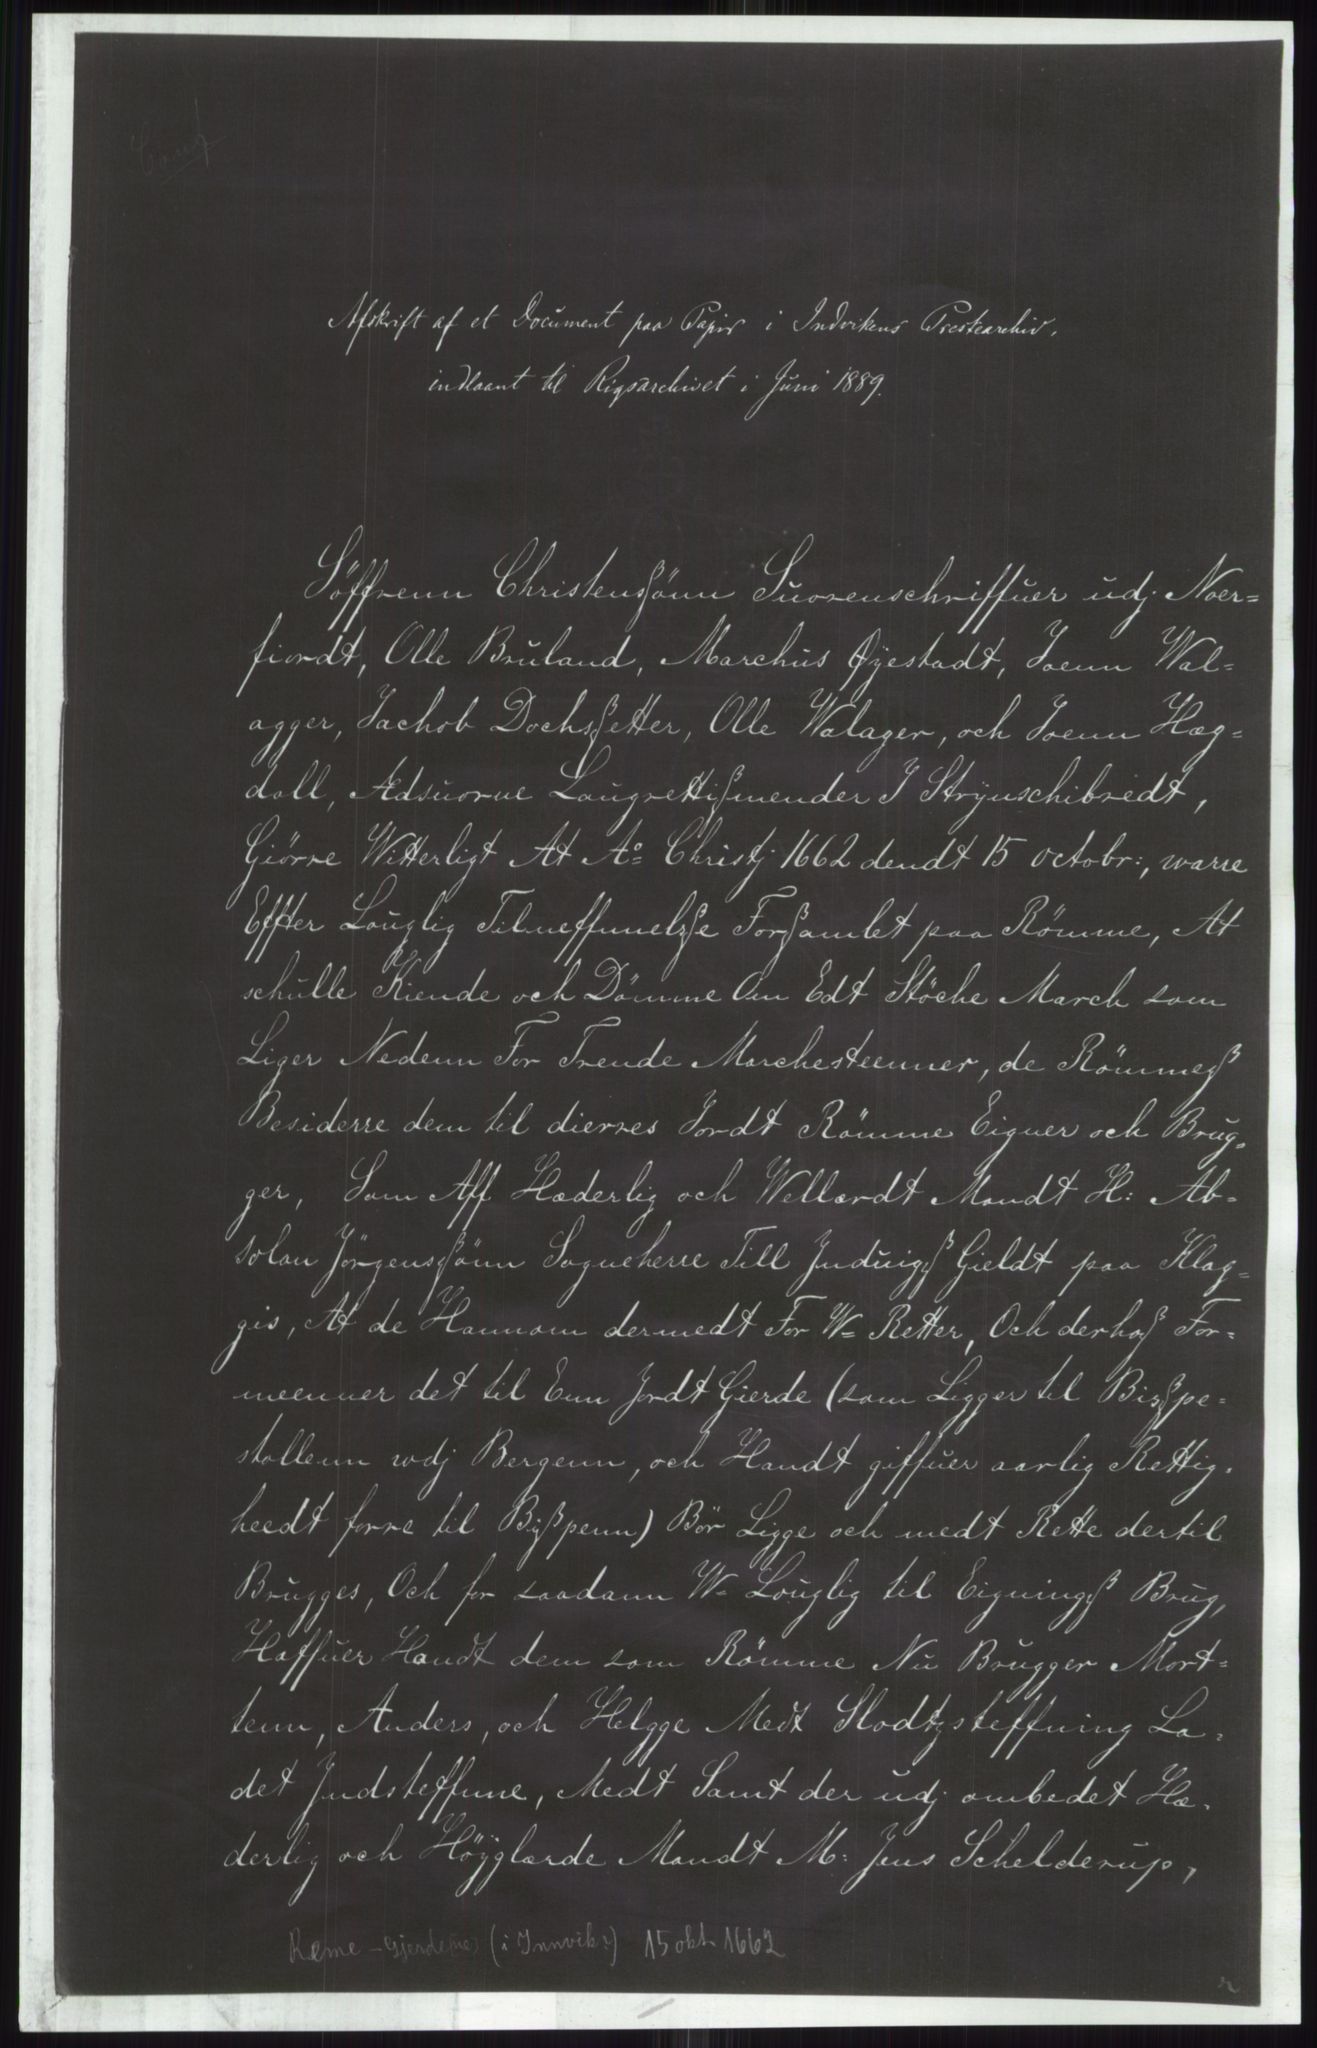 Conf
Afskrift af et Document paa Papir i Indvikens Prestearchiv,
indlaant til Rigsarchivet i Juni 1889.
Söffrenn Christensßönn Suorenschriffuer udj Noer=
fiordt, Olle Bruland, Marchus Øyestadt, Joenn Wal=
agger, Jachob Dochsßetter, Olle Walager, och Joenn Hæg=
dall, Ædsuorne Laugrettißmender J Strÿnschibredt,
Giörre Witterligt At Aº Christj 1662 dendt 15 octobr:, warre
Effter Louglig Tilneffnnelsße Forßamlet paa Römme, At
schulle Kiende och Dömme Om Edt Stöche March som
Liger Nedenn For Trende Marchesteenner, de Römmeß
Besiderre dem til dierres Jordt Römme Eigner och Brug=
ger, Som Aff Hæderlig och Wellærdt Mandt H: Ab=
solan Jörgensßönn Sogneherre Till Jnduigß Gieldt paa Klag=
gis, At de Hannom dermedt For W= Retter, Och derhoß For=
meenner det til Enn Jordt Gierde (som Ligger til Bisßpe=
stollenn wdj Bergenn, och Handt giffuer aarlig Rettig=
heedt forre til Byßpenn) Bör Ligge och medt Rette dertil
Brugges, Och for saadann W= Louglig til Eigningß Brug,
Haffuer Handt dem som Römme Nu Brugger Mort=
tenn, Anders, och Helgge Medt Slodtzsteffning La=
det Jndsteffnne, Medt Samt der udj ombedet Hæ=
derlig och Höÿglærde Mandt M: Jens Schelderup,
Ræme - Gjerde(ne) (i Innvik?) 15 okt. 1662